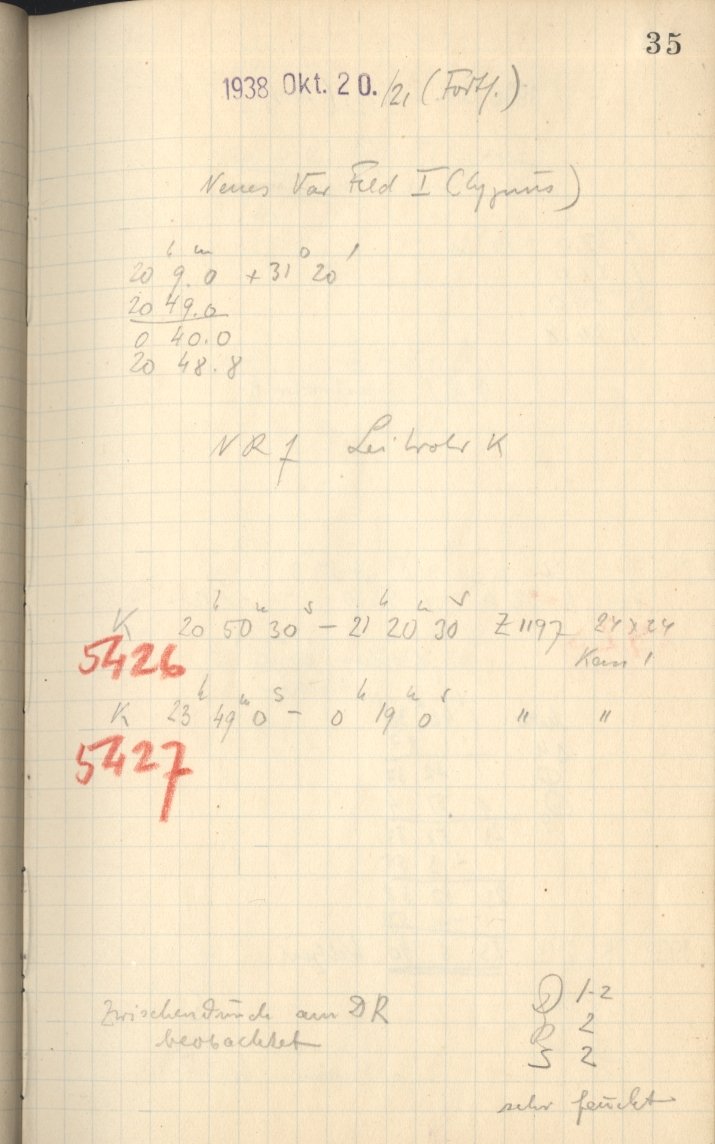 35
1938 Okt. 20./21 (Forts.)
Neues Var Feld I (Cygnus)
20h 9m.0 + 31° 20'
20 49.0
0 40.0
20 48.8
NRf Leitrohr K
K 20h 50m 30s - 21h 20m 30s Z 1197 24 x 24
5426
Kass 1
K 23h 49m 0s - 0h 19m 0s " "
5427
Zwischendurch am DR
beobachtet
D 1-2
2
S 2
sehr feucht